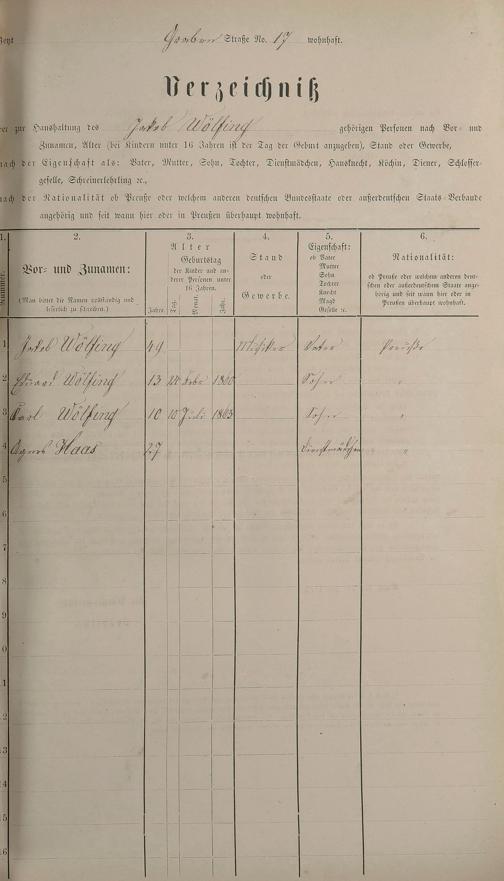 Jetzt Graben Straße No. 17 wohnhaft.
Verzeichniß
der zur Haushaltung des Jakob Wölfing gehörigen Personen nach Vor- und
Zunamen, Alter (bei Kindern unter 16 Jahren ist der Tag der Geburt anzugeben), Stand oder Gewerbe,
nach der Eigenschaft als: Vater, Mutter, Sohn, Tochter, Dienstmädchen, Hausknecht, Köchin, Diener, Schlosser-
geselle, Schreinerlehrling &c.,
nach der Nationalität ob Preuße oder welchem anderen deutschen Bundesstaate oder außerdeutschen Staats-Verbande
angehörig und seit wann hier oder in Preußen überhaupt wohnhaft.
1. 2. 3. 4. 5. 6.
Nummer.
Vor- und Zunamen:
(Man bittet die Namen vollständig und
leserlich zu schreiben.)
Alter
Geburtstag
der Kinder und an-
derer Personen unter
16 Jahren.
Jahre. Tag. Monat. Jahr.
Stand
oder
Gewerbe.
Eigenschaft:
ob Vater
Mutter
Sohn
Tochter
Knecht
Magd
Geselle &c.
Nationalität:
ob Preuße oder welchem anderen deut-
schen oder außerdeutschen Staate ange-
hörig und seit wann hier oder in
Preußen überhaupt wohnhaft.
1 Jakob Wölfing 49 Musiker Vater Preuße
2 Eduard Wölfing 13 Febr 1860 Sohn "
3 Carl Wölfing 10 10 Juli 1863 Sohn "
4 Agnes Haas 27 Dienstmädchen "
5
6
7
8
9
0
1
2
3
4
5
6